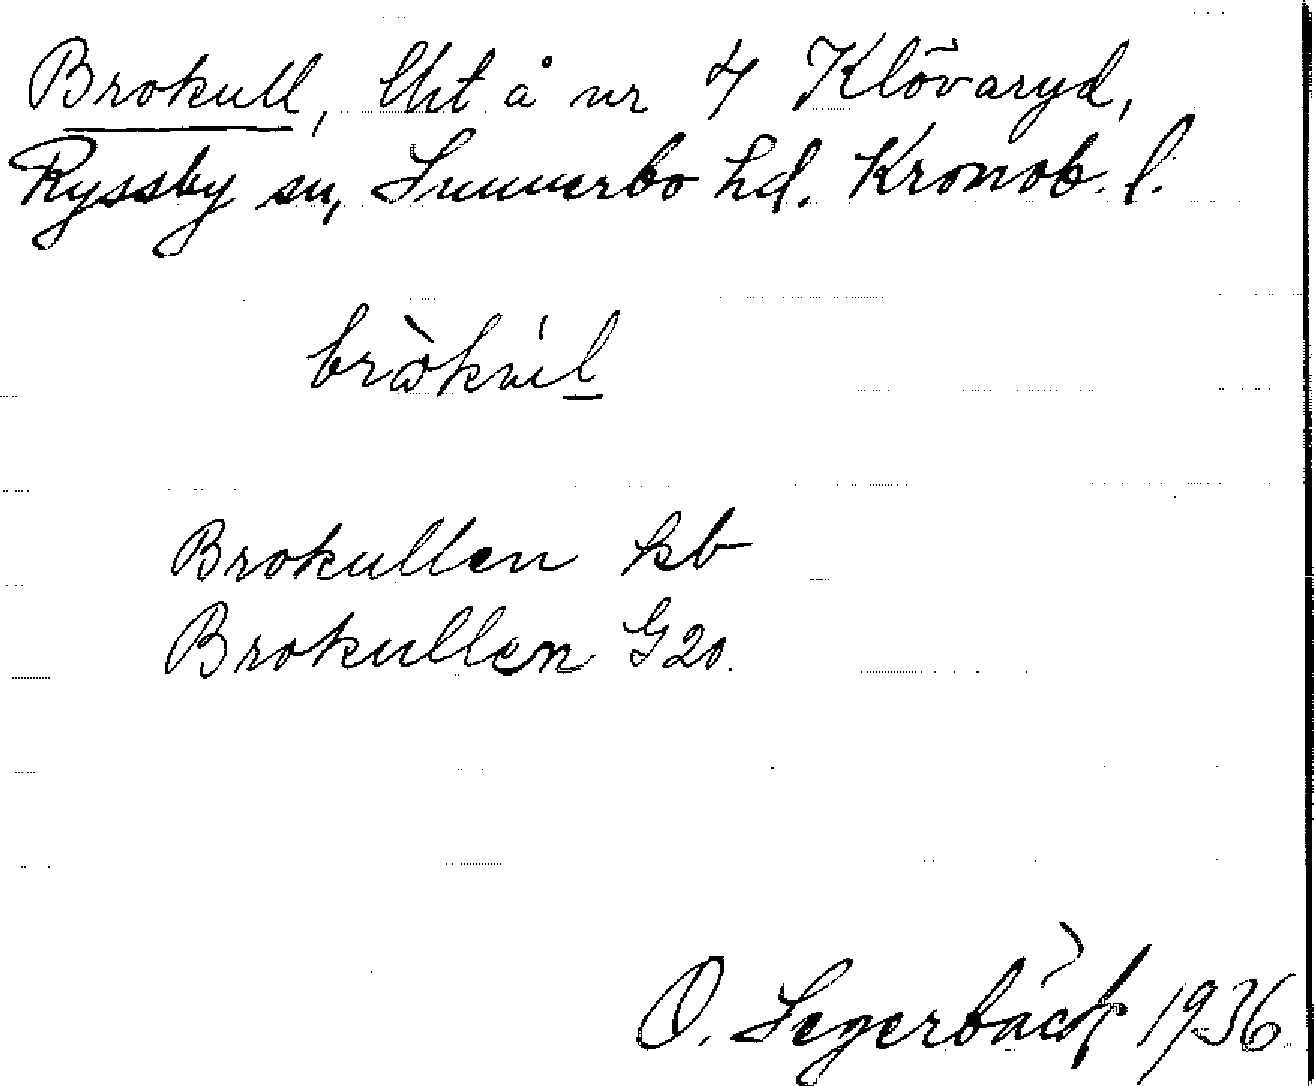 Brokull, lht å nr 4 Klövaryd,
Ryssby sn, Sunnerbo hd. Kronob. l.
Brokullen kb
Brokullen G20.
O. Segerbäck 1936